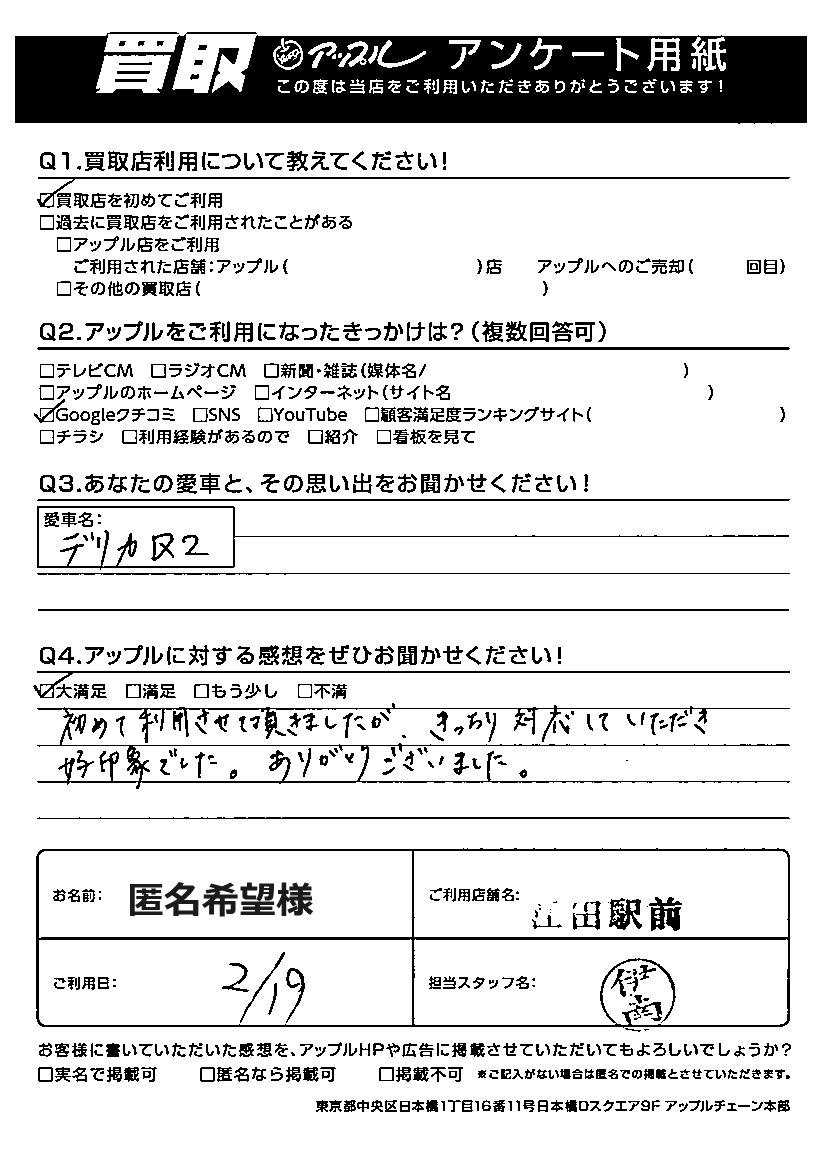 買取 アップル アンケート用紙
この度は当店をご利用いただきありがとうございます!
Q1.買取店利用について教えてください!
☑買取店を初めてご利用
□過去に買取店をご利用されたことがある
□アップル店をご利用
ご利用された店舗:アップル( )店 アップルへのご売却( 回目)
□その他の買取店( )
Q2.アップルをご利用になったきっかけは?(複数回答可)
□テレビCM □ラジオCM □新聞・雑誌(媒体名/ )
□アップルのホームページ □インターネット(サイト名 )
☑Googleクチコミ □SNS □YouTube □顧客満足度ランキングサイト( )
□チラシ □利用経験があるので □紹介 □看板を見て
Q3.あなたの愛車と、その思い出をお聞かせください!
愛車名:
デリカD2
Q4.アップルに対する感想をぜひお聞かせください!
☑大満足 □満足 □もう少し □不満
初めて利用させて頂きましたが、きっちり対応していただき
好印象でした。ありがとうございました。
お名前: 匿名希望様 ご利用店舗名: 江田駅前
ご利用日: 2/19 担当スタッフ名: 伊
お客様に書いていただいた感想を、アップルHPや広告に掲載させていただいてもよろしいでしょうか?
□実名で掲載可 □匿名なら掲載可 □掲載不可 ※ご記入がない場合は匿名での掲載とさせていただきます。
東京都中央区日本橋1丁目16番11号日本橋Dスクエア9F アップルチェーン本部